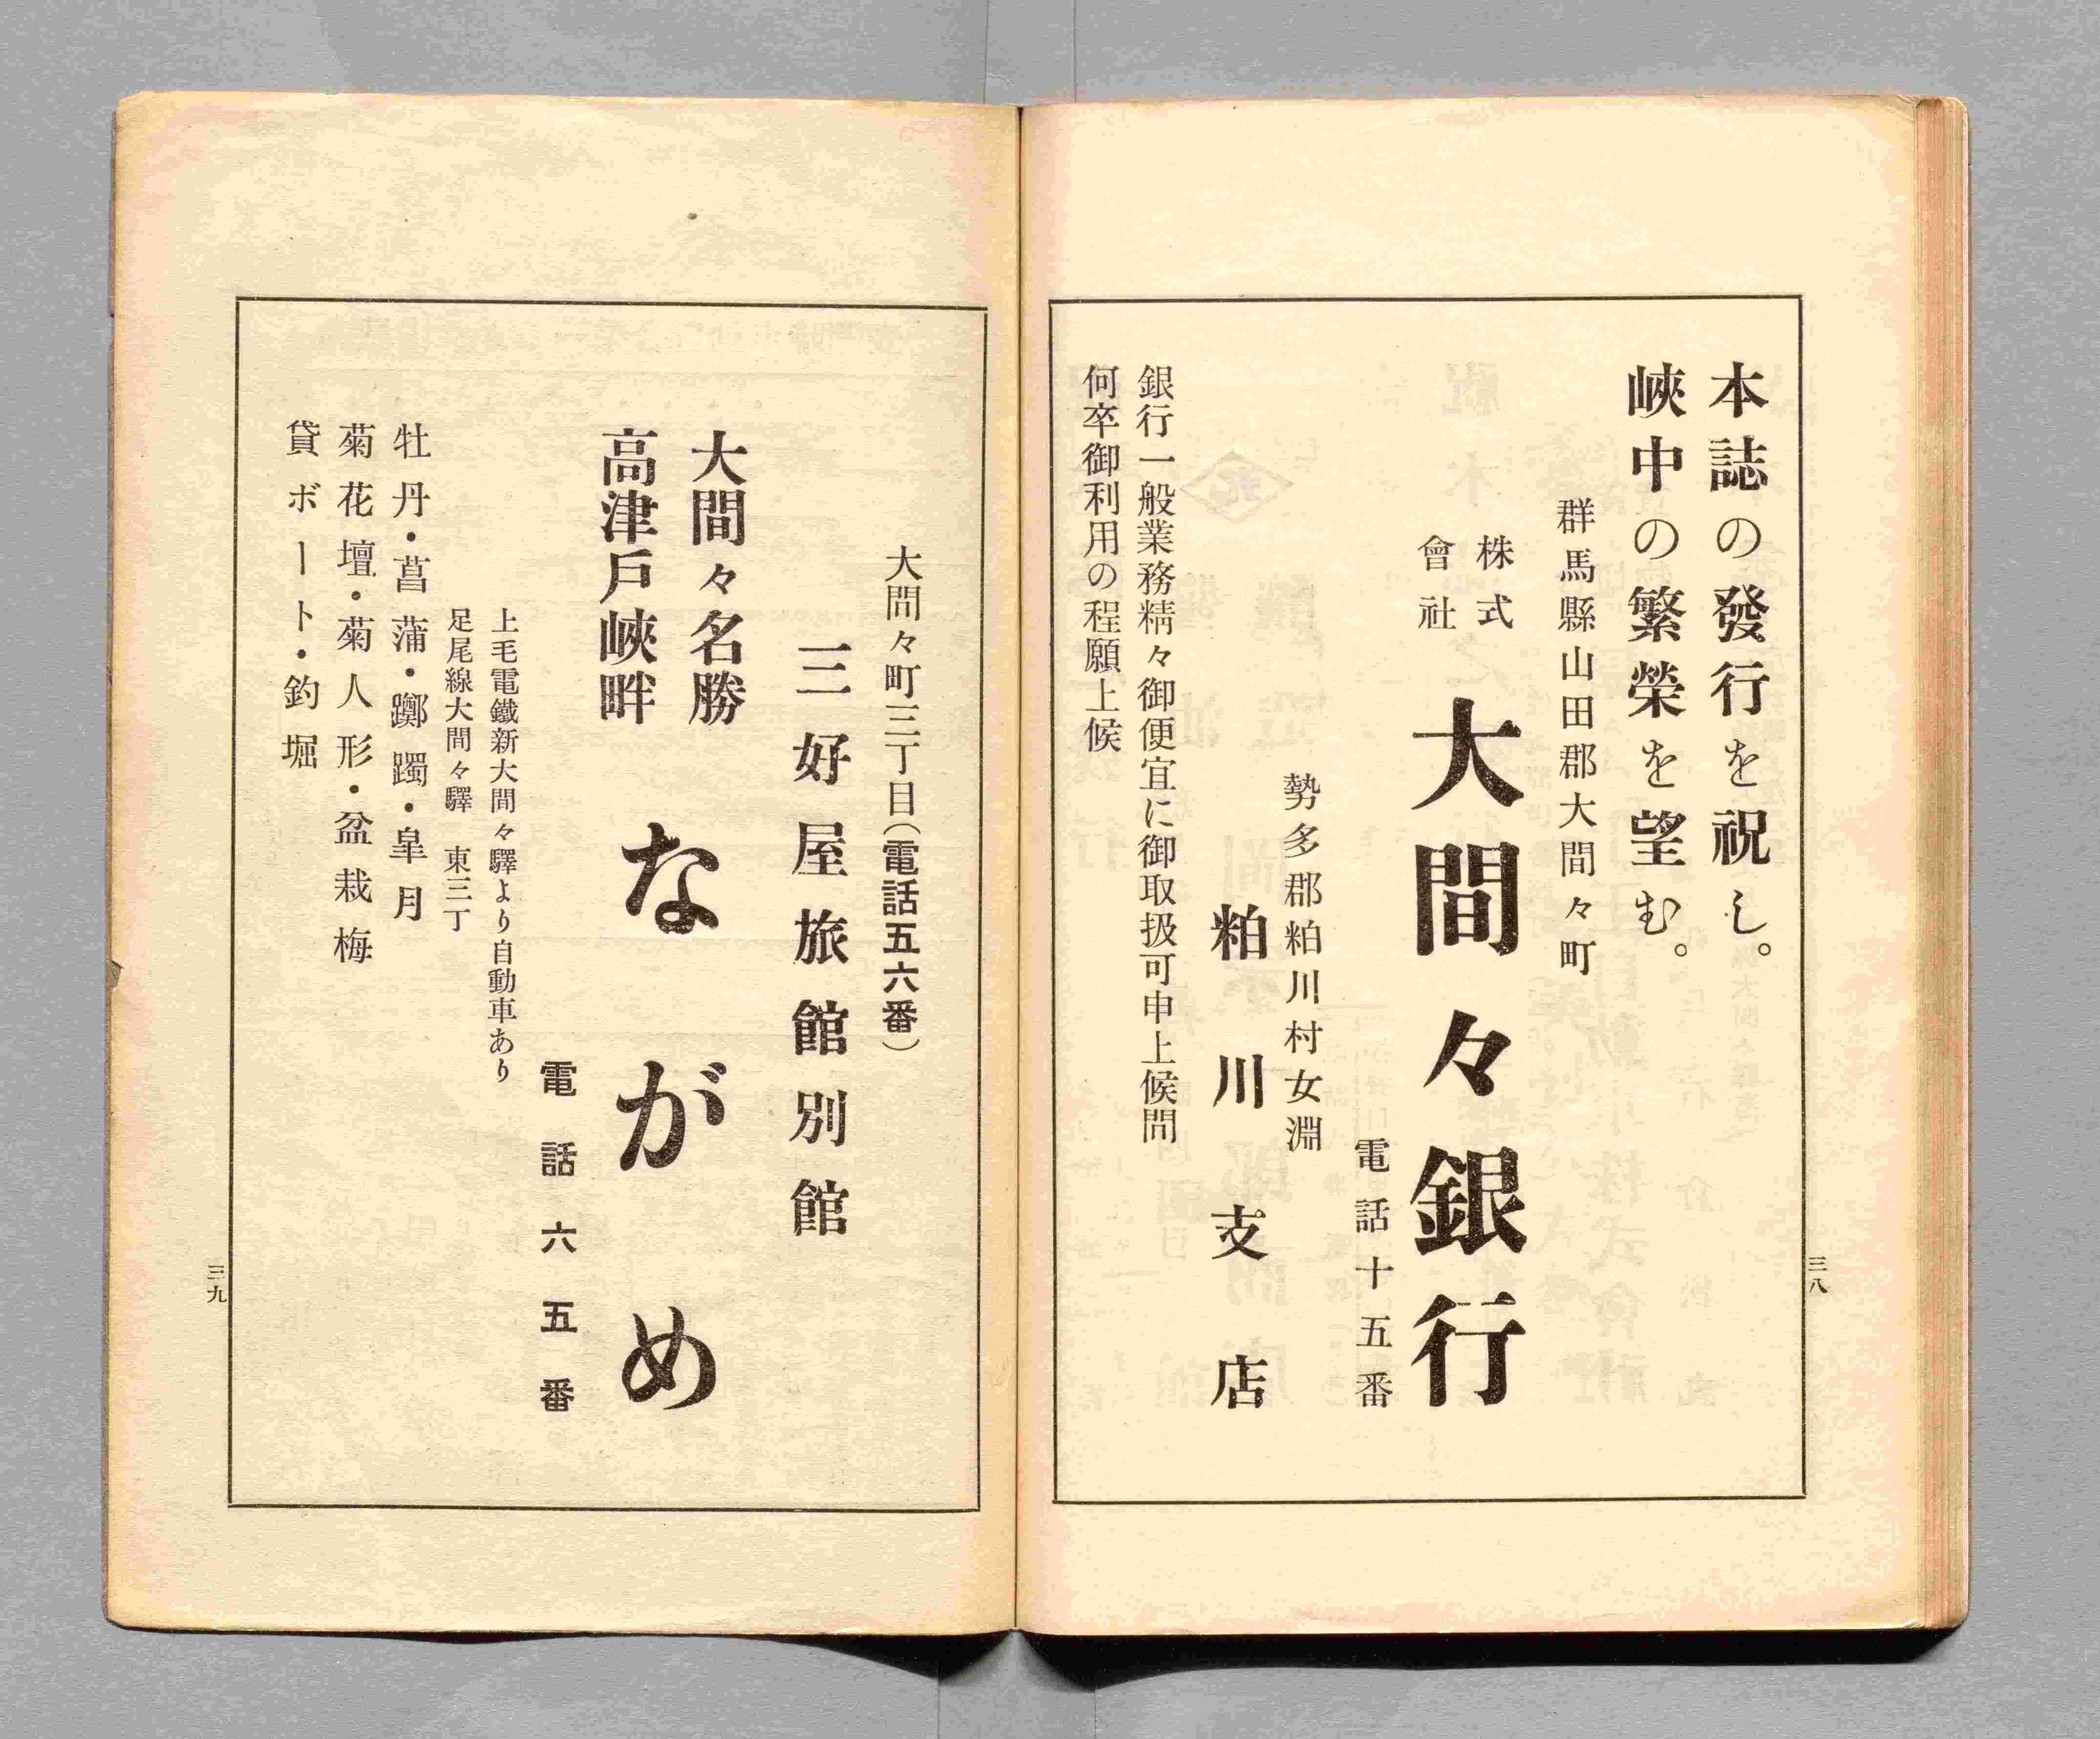 本誌の發行を祝し。
峽中の繁榮を望む。
群馬縣山田郡大間々町
株式
會社
大間々銀行
電話十五番
勢多郡粕川村女淵
粕川支店
銀行一般業務精々御便宜に御取扱可申上候間
何卒御利用の程願上候
三八
大間々町三丁目(電話五六番)
三好屋旅館別館
大間々名勝
高津戶峽畔
ながめ
電話六五番
上毛電鐵新大間々驛より自動車あり
足尾線大間々驛 東三丁
牡丹・菖蒲・躑躅・皐月
菊花壇・菊人形・盆栽梅
貸ボート・釣堀
三九